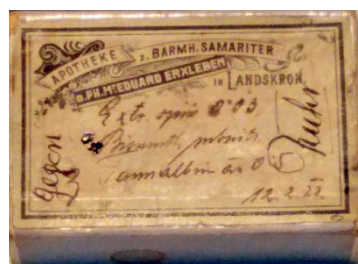 APOTHEKE z. BARMH. SAMARITER
D. PH. Mr. EDUARD ERXLEBEN
IN LANDSKRON.
Extr. opii 0.03
Bismuth. subnitr.
Tannalbin aa 0.
gegen
Ruhr
12.2.